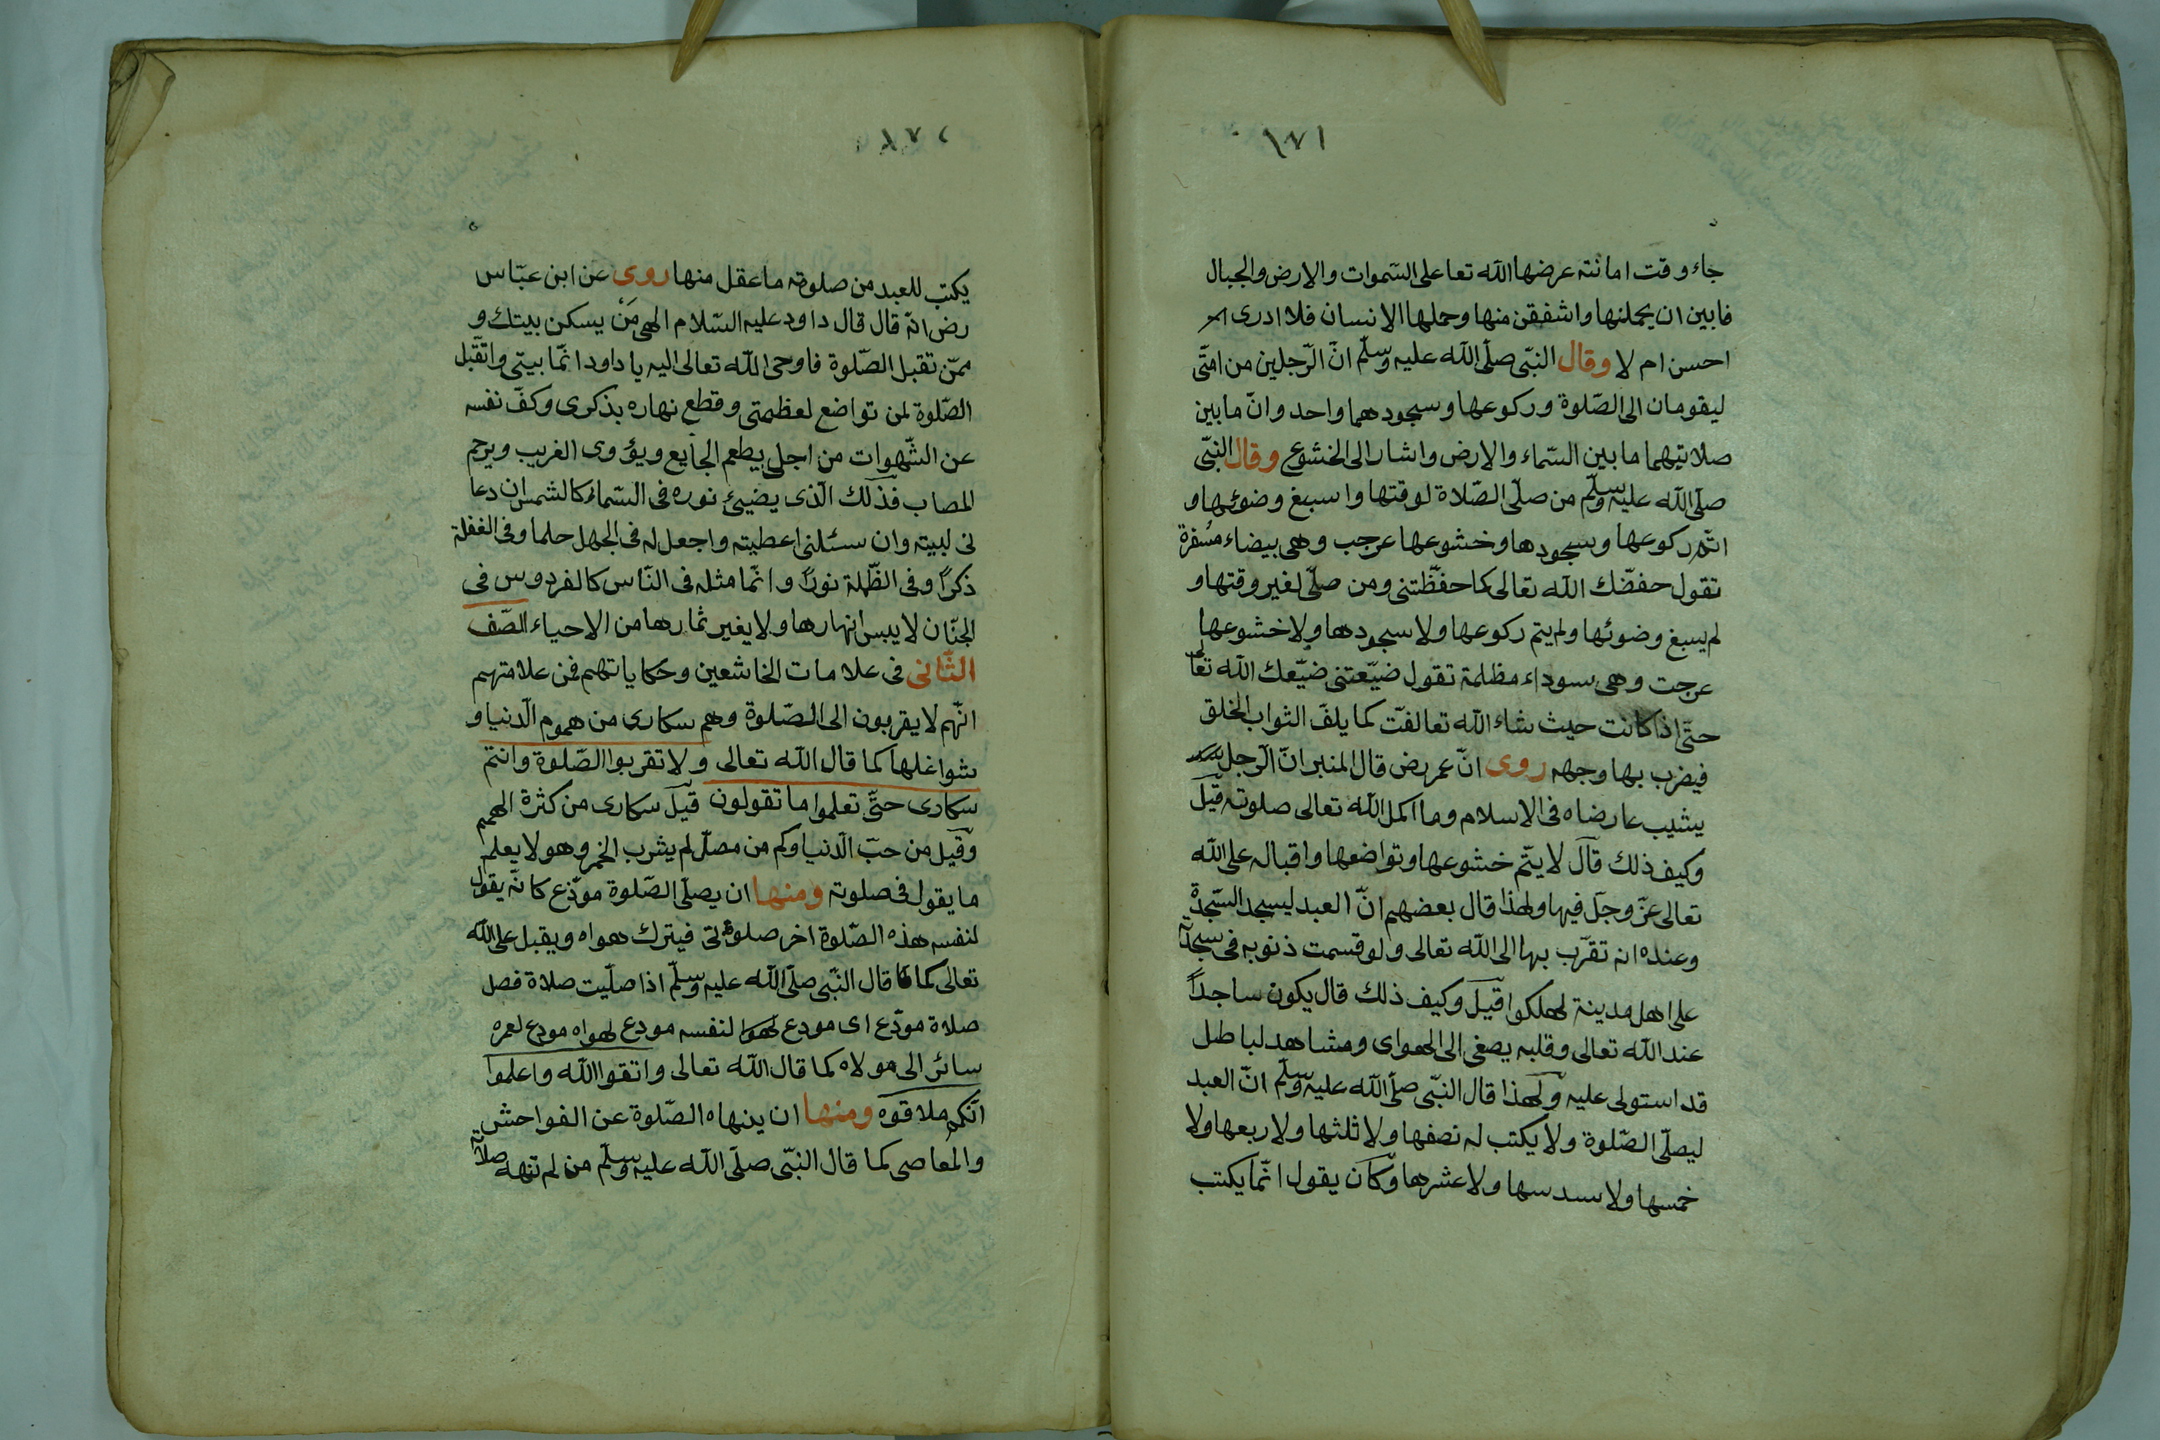 ١٧١
جاء وقت امانته عرضها الله تعا على السّموات والارض والجبال
فابين ان يحملنها واشفقن منها وحملها الانسان فلا ادرى
احسن ام لا وقال النبّى صلّى الله عليه وسلّم انّ الرّجلين من امّتى
ليقومان الى الصّلوة وركوعها وسجودهما واحد وانّ ما بين
صلاتيهما ما بين السّماء والارض واشار الى الخشوع وقال النبّى
صلّى الله عليه وسلّم من صلّى الصّلاة لوقتها واسبغ وضوئها و
اتمّ ركوعها وسجودها وخشوعها عرجب وهى بيضاء مُسفرة
تقول حفظّك الله تعالى كما حفظّتنى ومن صلّى لغير وقتها و
لم يسبغ وضوئها ولم يتم ركوعها ولا سجودها ولا خشوعها
عرجت وهى سوداء مظلمة تقول ضيّعتنى ضيّعك الله تعالى
حتّى اذا كانت حيث شاء الله تعا لفّت كما يلفّ الثواب الخلق
فيضرب بها وجهه روى انّ عمر رض قال المنبر انّ الرّجل
يشيب عارضاه فى الاسلام وما اكمل الله تعالى صلوته قيل
وكيف ذلك قال لا يتّم خشوعها وتواضعها واقباله على الله
تعالى عزّ وجلّ فيها ولهذا قال بعضهم انّ العبد ليسجد السّجدة
وعنده انه تقرّب بها الى الله تعالى ولو قسمت ذنوبه فى سجدته
على اهل مدينة لهلكوا قيل وكيف ذلك قال يكون ساجداً
عند الله تعالى وقلبه يصغى الى الهواى ومشاهد لباطل
قد استولى عليه ولهذا قال النبّى صلّى الله عليه وسلّم انّ العبد
ليصلّى الصّلوة ولا يكتب له نصفها ولا ثلثها ولا ربعها ولا
خمسها ولا سدسها ولا عشرها وكان يقول انّما يكتب
١٧٢
يكتب للعبد من صلوته ما عقل منها روى عن ابن عبّاس
رض انّه قال قال داود عليه السّلام الهى مَن يسكن بيتك و
ممّن تقبل الصّلوة فاوحى الله تعالى اليه يا داود انّما بيتى واتقبّل
الصّلوة لمن تواضع لعظمتى وقطع نهاره بذكرى وكفّ نفسه
عن الشّهوات من اجلى يطعم الجايع ويؤوى الغريب ويرحم
المصاب فذلك الّذى يضيئ نوره فى السّماء كالشمس ان دعا
نى لبيته وان سئلنى اعطيته واجعل له فى الجهل حلما وفى الغفلة
ذكراً وفى الظّلمة نوراً وانّما مثله فى النّاس كالفردوس فى
الجنّان لا ييبس انهارها ولا يغير ثمارها من الاحياء الصّف
الثّانى فى علامات الخاشعين وحكاياتهم فمن علامتهم
انّهم لا يقربون الى الصّلوة وهم سكارى من هموم الّدنيا و
شواغلها كما قال الله تعالى ولا تقربوا الصّلوة وانتم
سكارى حتّى تعلموا ما تقولون قيل سكارى من كثرة الهمم
وقيل من حبّ الّدنيا وكم من مصلّ لم يشرب الخمر وهو لا يعلم
ما يقول فى صلوته ومنها ان يصلّى الصّلوة مودّع كانّه يقول
لنفسه هذه الصّلوة اخر صلوتى فيترك هواه ويقبل على الله
تعالى كما قال النبّى صلّى الله عليه وسلّم اذا صلّيت صلاة فصل
صلاة مودّع اى مودع لنفسه مودع لهواه مودع لعمره
سائر الى مولاه كما قال الله تعالى واتقوا الله واعلموا
انّكم ملاقوه ومنها ان ينهاه الصّلوة عن الفواحش
والمعاصى كما قال النبّى صلّى الله عليه وسلّم من لم تنهه صلاته